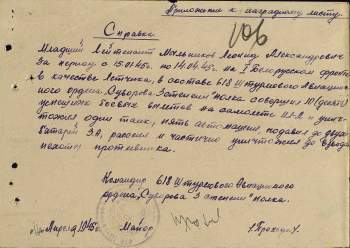 Приложение к наградному листу.
Справка
Младший Лейтенант Мыльников Леонид Александрович
За период с 15.01.45г. по 14.04.45г. на I Белорусском фронте
в качестве Летчика, в составе 618 Штурмового Авиацион-
ного ордена „Суворова 3 степени" полка совершил 10 (десять)
успешных боевых вылетов на самолете ИЛ-2 и унич-
тожил один танк, пять автомашин, подавил до двух
батарей ЗА, рассеял и частично уничтожил до взвода
пехоты противника.
Командир 618 Штурмового Авиационного
ордена „Суворова 3 степени" полка.
Апреля 1945г. Майор